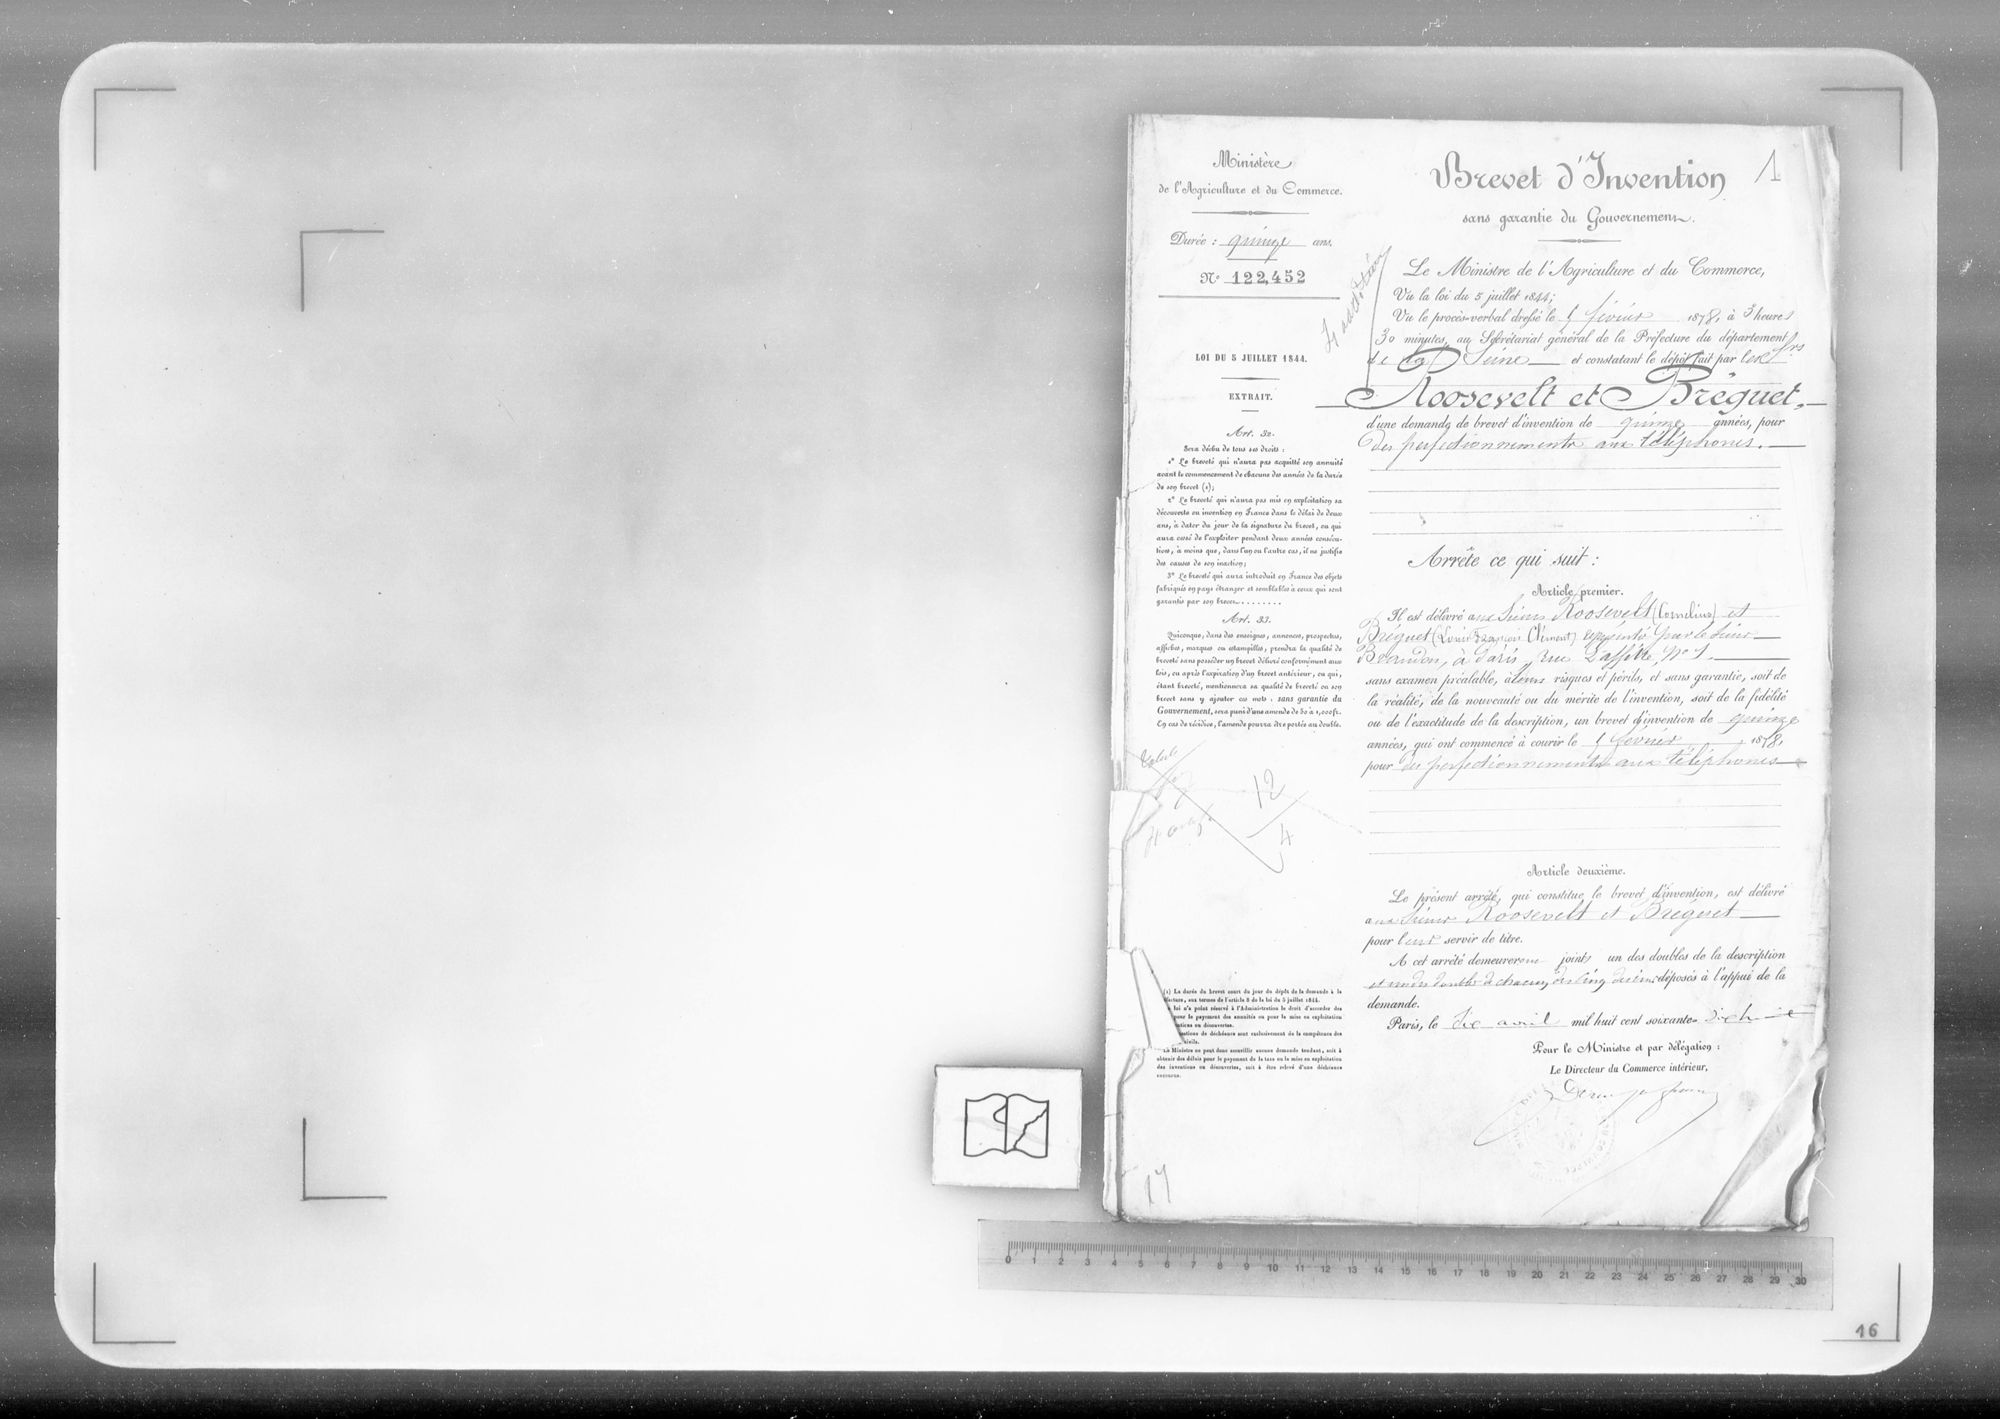 Ministère
de l'Agriculture et du Commerce.
Durée : quinze ans.
N° 122,452
LOI DU 5 JUILLET 1844.
EXTRAIT.
Art. 32.
Sera déchu de tous ses droits :
1° Le breveté qui n'aura pas acquitté son annuité
avant le commencement de chacune des années de la durée
de son brevet (1);
2° Le breveté qui n'aura pas mis en exploitation sa
découverte ou invention en France dans le délai de deux
ans, à dater du jour de la signature du brevet, ou qui
aura cessé de l'exploiter pendant deux années consécu-
tives, à moins que, dans l'un ou l'autre cas, il ne justifie
des causes de son inaction;
3° Le breveté qui aura introduit en France des objets
fabriqués en pays étranger et semblables à ceux qui sont
garantis par son brevet........
Art. 33.
Quiconque, dans des enseignes, annonces, prospectus,
affiches, marques ou estampilles, prendra la qualité de
breveté sans posséder un brevet délivré conformément aux
lois, ou après l'expiration d'un brevet antérieur, ou qui,
étant breveté, mentionnera sa qualité de breveté ou son
brevet sans y ajouter ces mots : sans garantie du
Gouvernement, sera puni d'une amende de 50 à 1,000 fr.
En cas de récidive, l'amende pourra être portée au double.
12
4
(1) La durée du brevet court du jour du dépôt de la demande à la
fecture, aux termes de l'article 8 de la loi du 5 juillet 1844.
loi n'a point réservé à l'Administration le droit d'accorder des
pour le payement des annuités ou pour la mise en exploitation
ntions ou découvertes.
stions de déchéance sont exclusivement de la compétence des
civils.
Le Ministre ne peut donc accueillir aucune demande tendant, soit à
obtenir des délais pour le payement de la taxe ou la mise en exploitation
des inventions ou découvertes, soit à être relevé d'une déchéance
encourue.
17
Brevet d'Invention
1
sans garantie du Gouvernement.
4 additions
Le Ministre de l'Agriculture et du Commerce,
Vu la loi du 5 juillet 1844;
Vu le procès-verbal dressé le 1 février 1878, à 3 heures
30 minutes, au Secrétariat général de la Préfecture du département
de la Seine et constatant le dépôt fait par les Srs
Roosevelt et Bréguet,
d'une demande de brevet d'invention de quinze années, pour
des perfectionnements aux téléphones.
Arrête ce qui suit :
Article premier.
Il est délivré aux Sieurs Roosevelt (Cornelius) et
Bréguet (Louis François Clément) représentés par le Sieur
Brandon, à Paris, rue Laffitte, n° 1.
sans examen préalable, à leurs risques et périls, et sans garantie, soit de
la réalité, de la nouveauté ou du mérite de l'invention, soit de la fidélité
ou de l'exactitude de la description, un brevet d'invention de quinze
années, qui ont commencé à courir le 1 février 1878,
pour des perfectionnements aux téléphones
Article deuxième.
Le présent arrêté, qui constitue le brevet d'invention, est délivré
aux Sieurs Roosevelt et Bréguet
pour leur servir de titre.
A cet arrêté demeureront joints un des doubles de la description
et un des doubles de chacun des cinq dessins déposés à l'appui de la
demande.
Paris, le dix avril mil huit cent soixante-dix-huit
Pour le Ministre et par délégation :
Le Directeur du Commerce intérieur,
0 1 2 3 4 5 6 7 8 9 10 11 12 13 14 15 16 17 18 19 20 21 22 23 24 25 26 27 28 29 30
16